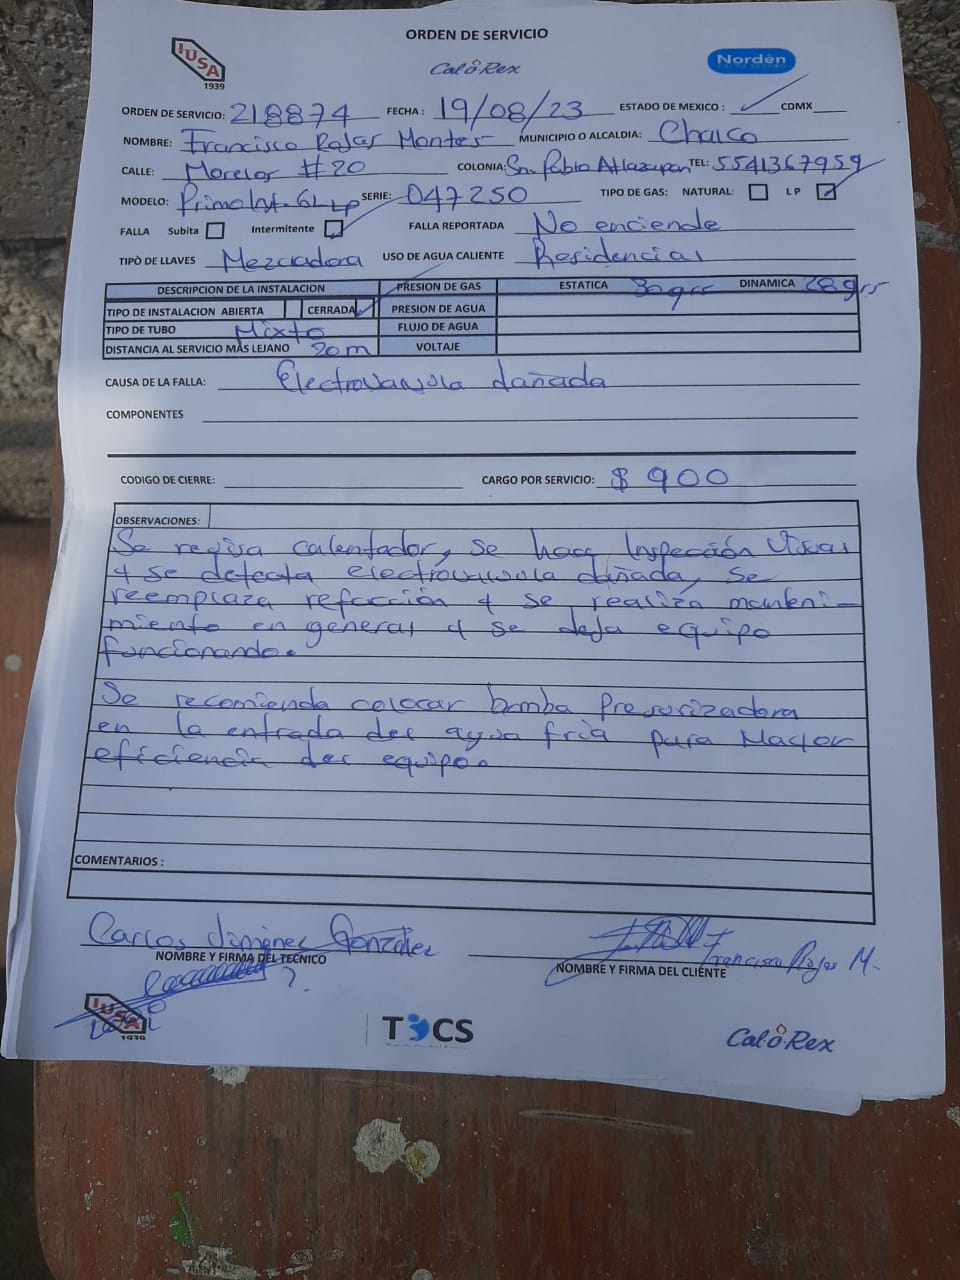 ORDEN DE SERVICIO
IUSA
1939
Cal-o-Rex
Nordën
ORDEN DE SERVICIO: 218874 FECHA : 19/08/23 ESTADO DE MEXICO : CDMX
NOMBRE: Francisco Rojas Montes MUNICIPIO O ALCALDIA: Chalco
CALLE: Morelos #20 COLONIA: Sn. Pablo Atlazapan TEL: 5541367959
MODELO: Primo Int. 6L LP SERIE: 047250 TIPO DE GAS: NATURAL: L P
FALLA Subita Intermitente FALLA REPORTADA No enciende
TIPÒ DE LLAVES Mezcladora USO DE AGUA CALIENTE Residencial
DESCRIPCION DE LA INSTALACION PRESION DE GAS ESTATICA 30grs DINAMICA 28grs
TIPO DE INSTALACION ABIERTA CERRADA PRESION DE AGUA
TIPO DE TUBO Mixto FLUJO DE AGUA
DISTANCIA AL SERVICIO MÁS LEJANO 20m VOLTAJE
CAUSA DE LA FALLA: Electrovalvula dañada
COMPONENTES
CODIGO DE CIERRE: CARGO POR SERVICIO: $ 900
OBSERVACIONES:
Se revisa calentador, se hace Inspección Visual
y se detecta electróvalvula dañada, se
reemplaza refacción y se realiza manteni-
miento en general y se deja equipo
funcionando.
Se recomienda colocar bomba Presurizadora
en la entrada del agua fria para Mayor
eficiencia del equipo.
COMENTARIOS :
Carlos Jiménez González
NOMBRE Y FIRMA DEL TECNICO
Francisco Rojas M.
NOMBRE Y FIRMA DEL CLIENTE
IUSA
1939
TOCS
Cal-o-Rex